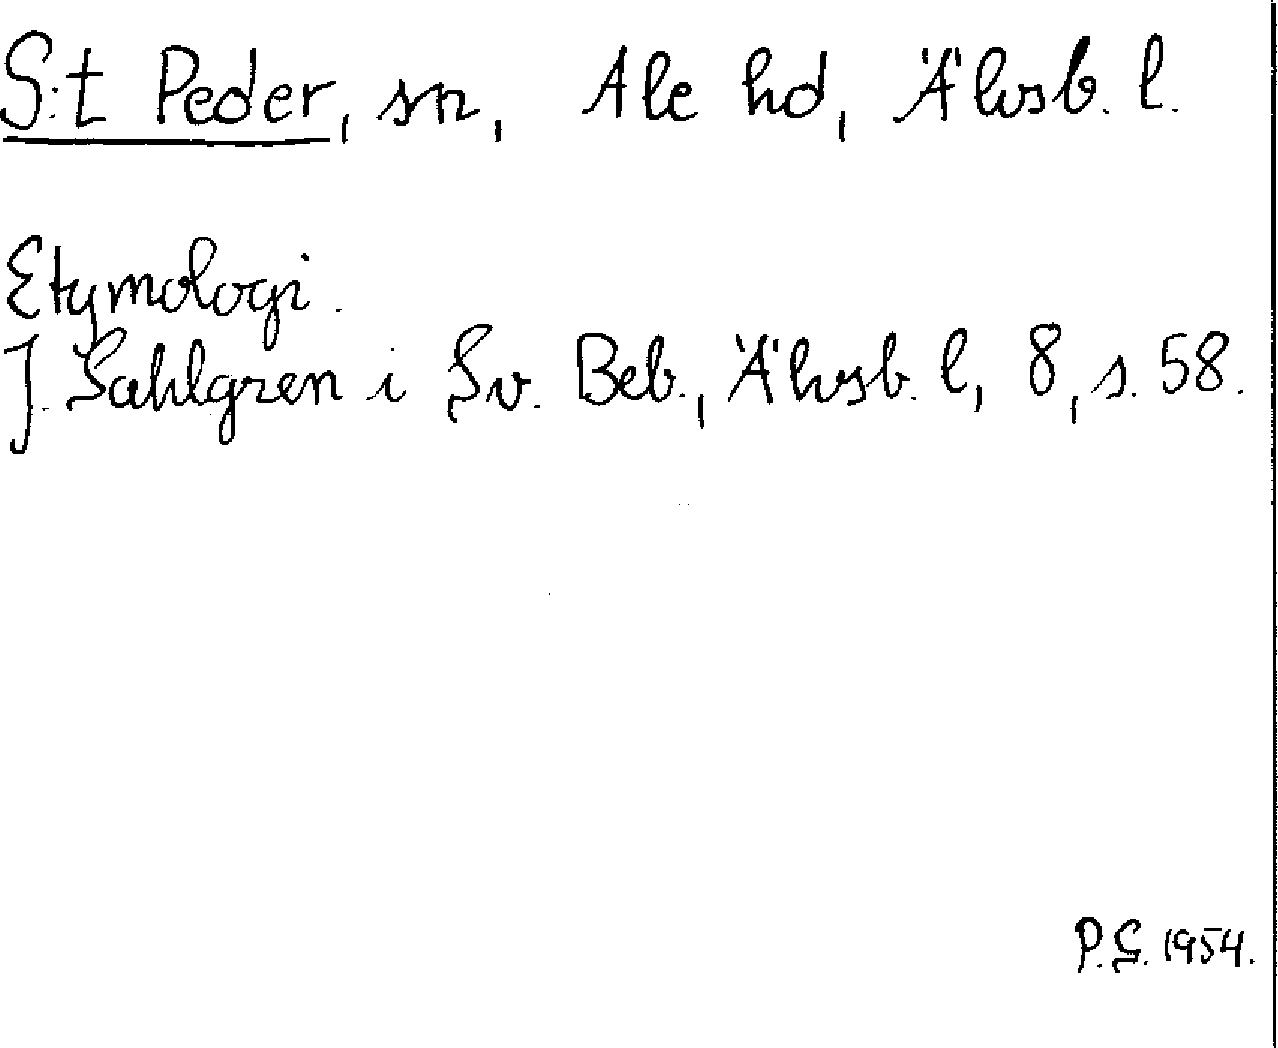 S:t Peder, sn, Ale hd, Älvsb. l.
Etymologi.
J. Sahlgren i Sv. Beb., Älvsb. l, 8, s. 58.
P.G. 1954.